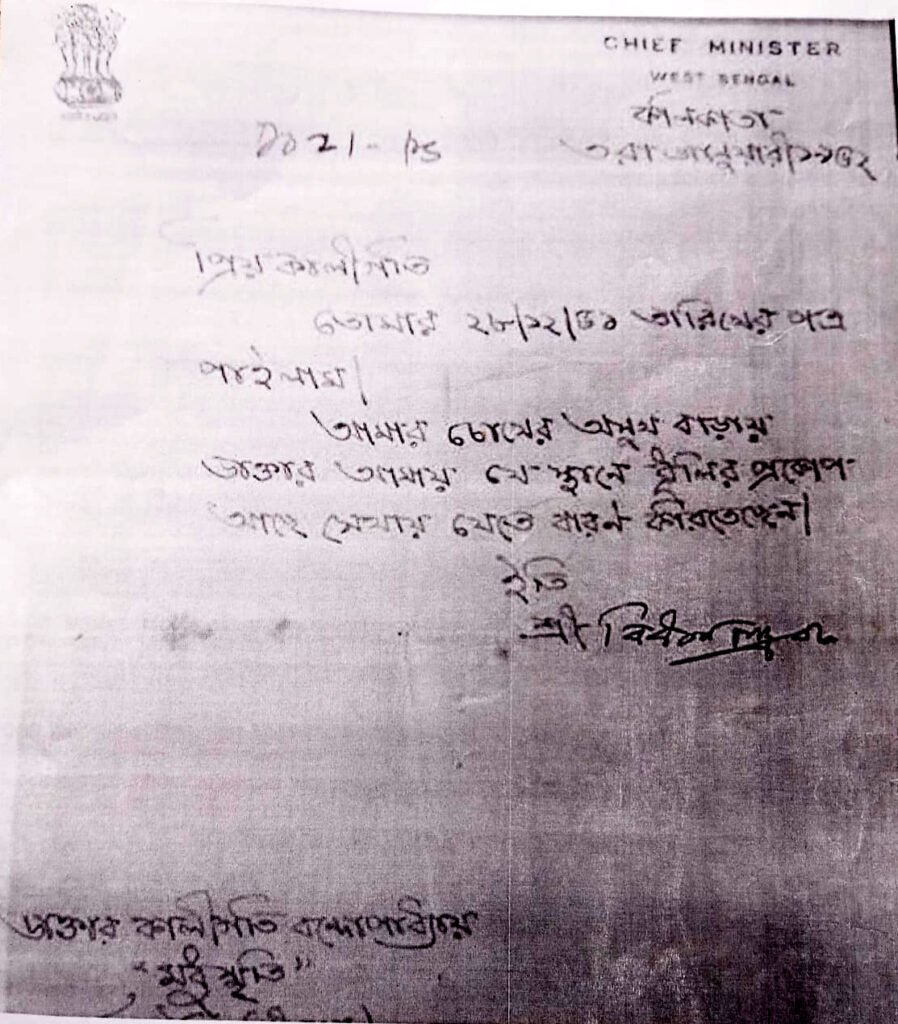 CHIEF MINISTER
WEST BENGAL
কলিকাতা
৩রা জানুয়ারী/১৯৬২
প্রিয় কালীগতি
তোমার ২৮/১২/৬১ তারিখের পত্র
পাইলাম।
আমার চোখের অসুখ বাড়ায়
ডাক্তার আমায় যে স্থানে ধূলির প্রকোপ
আছে সেথায় যেতে বারণ করিতেছেন।
ইতি
শ্রী বিধানচন্দ্র রায়
ডাক্তার কালীগতি বন্দোপাধ্যায়
"মধু স্মৃতি"